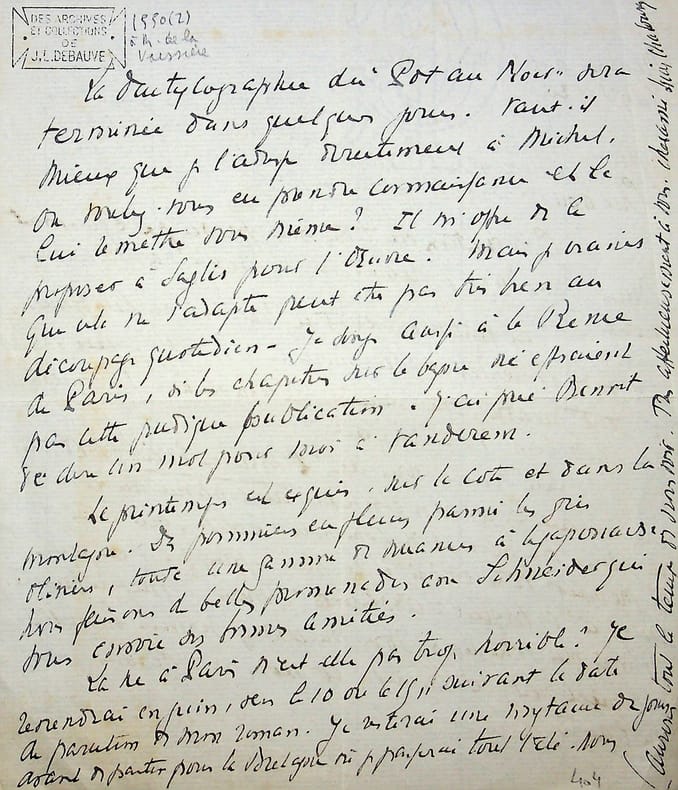 DES ARCHIVES
ET COLLECTIONS
DE
J.L. DEBAUVE
1990(2)
à M. de la
Vaissière
La dactylographie du "Pot au Noir" sera
terminée dans quelques jours. Vaut-il
mieux que je l'adresse directement à Michel,
ou voulez-vous en prendre connaissance et le
lui remettre vous même? Il m'offre de le
proposer à pour l'Œuvre. Mais je crains
que cela ne s'adapte peut être pas très bien au
découpage quotidien - Je songe aussi à la Revue
de Paris, si les chapitres sur le bagne n'effraient
pas cette pudique publication. J'ai prié Benoit
de dire un mot pour moi à Vandérem.
Le printemps est exquis, sur la côte et dans la
montagne. Des pommiers en fleurs parmi les gris
oliviers, toute une gamme de nuances à
Nous faisons de belles promenades avec Schneider qui
vous envoie ses bonnes amitiés.
La vie à Paris n'est-elle pas trop horrible? Je
reviendrai en juin, vers le 10 ou le 15, suivant la date
de parution de mon roman. Je resterai une de jours
avant de partir pour la Bretagne où je passerai tout l'été. Nous
aurons tout le temps de nous voir. Très affectueusement à vous,
404